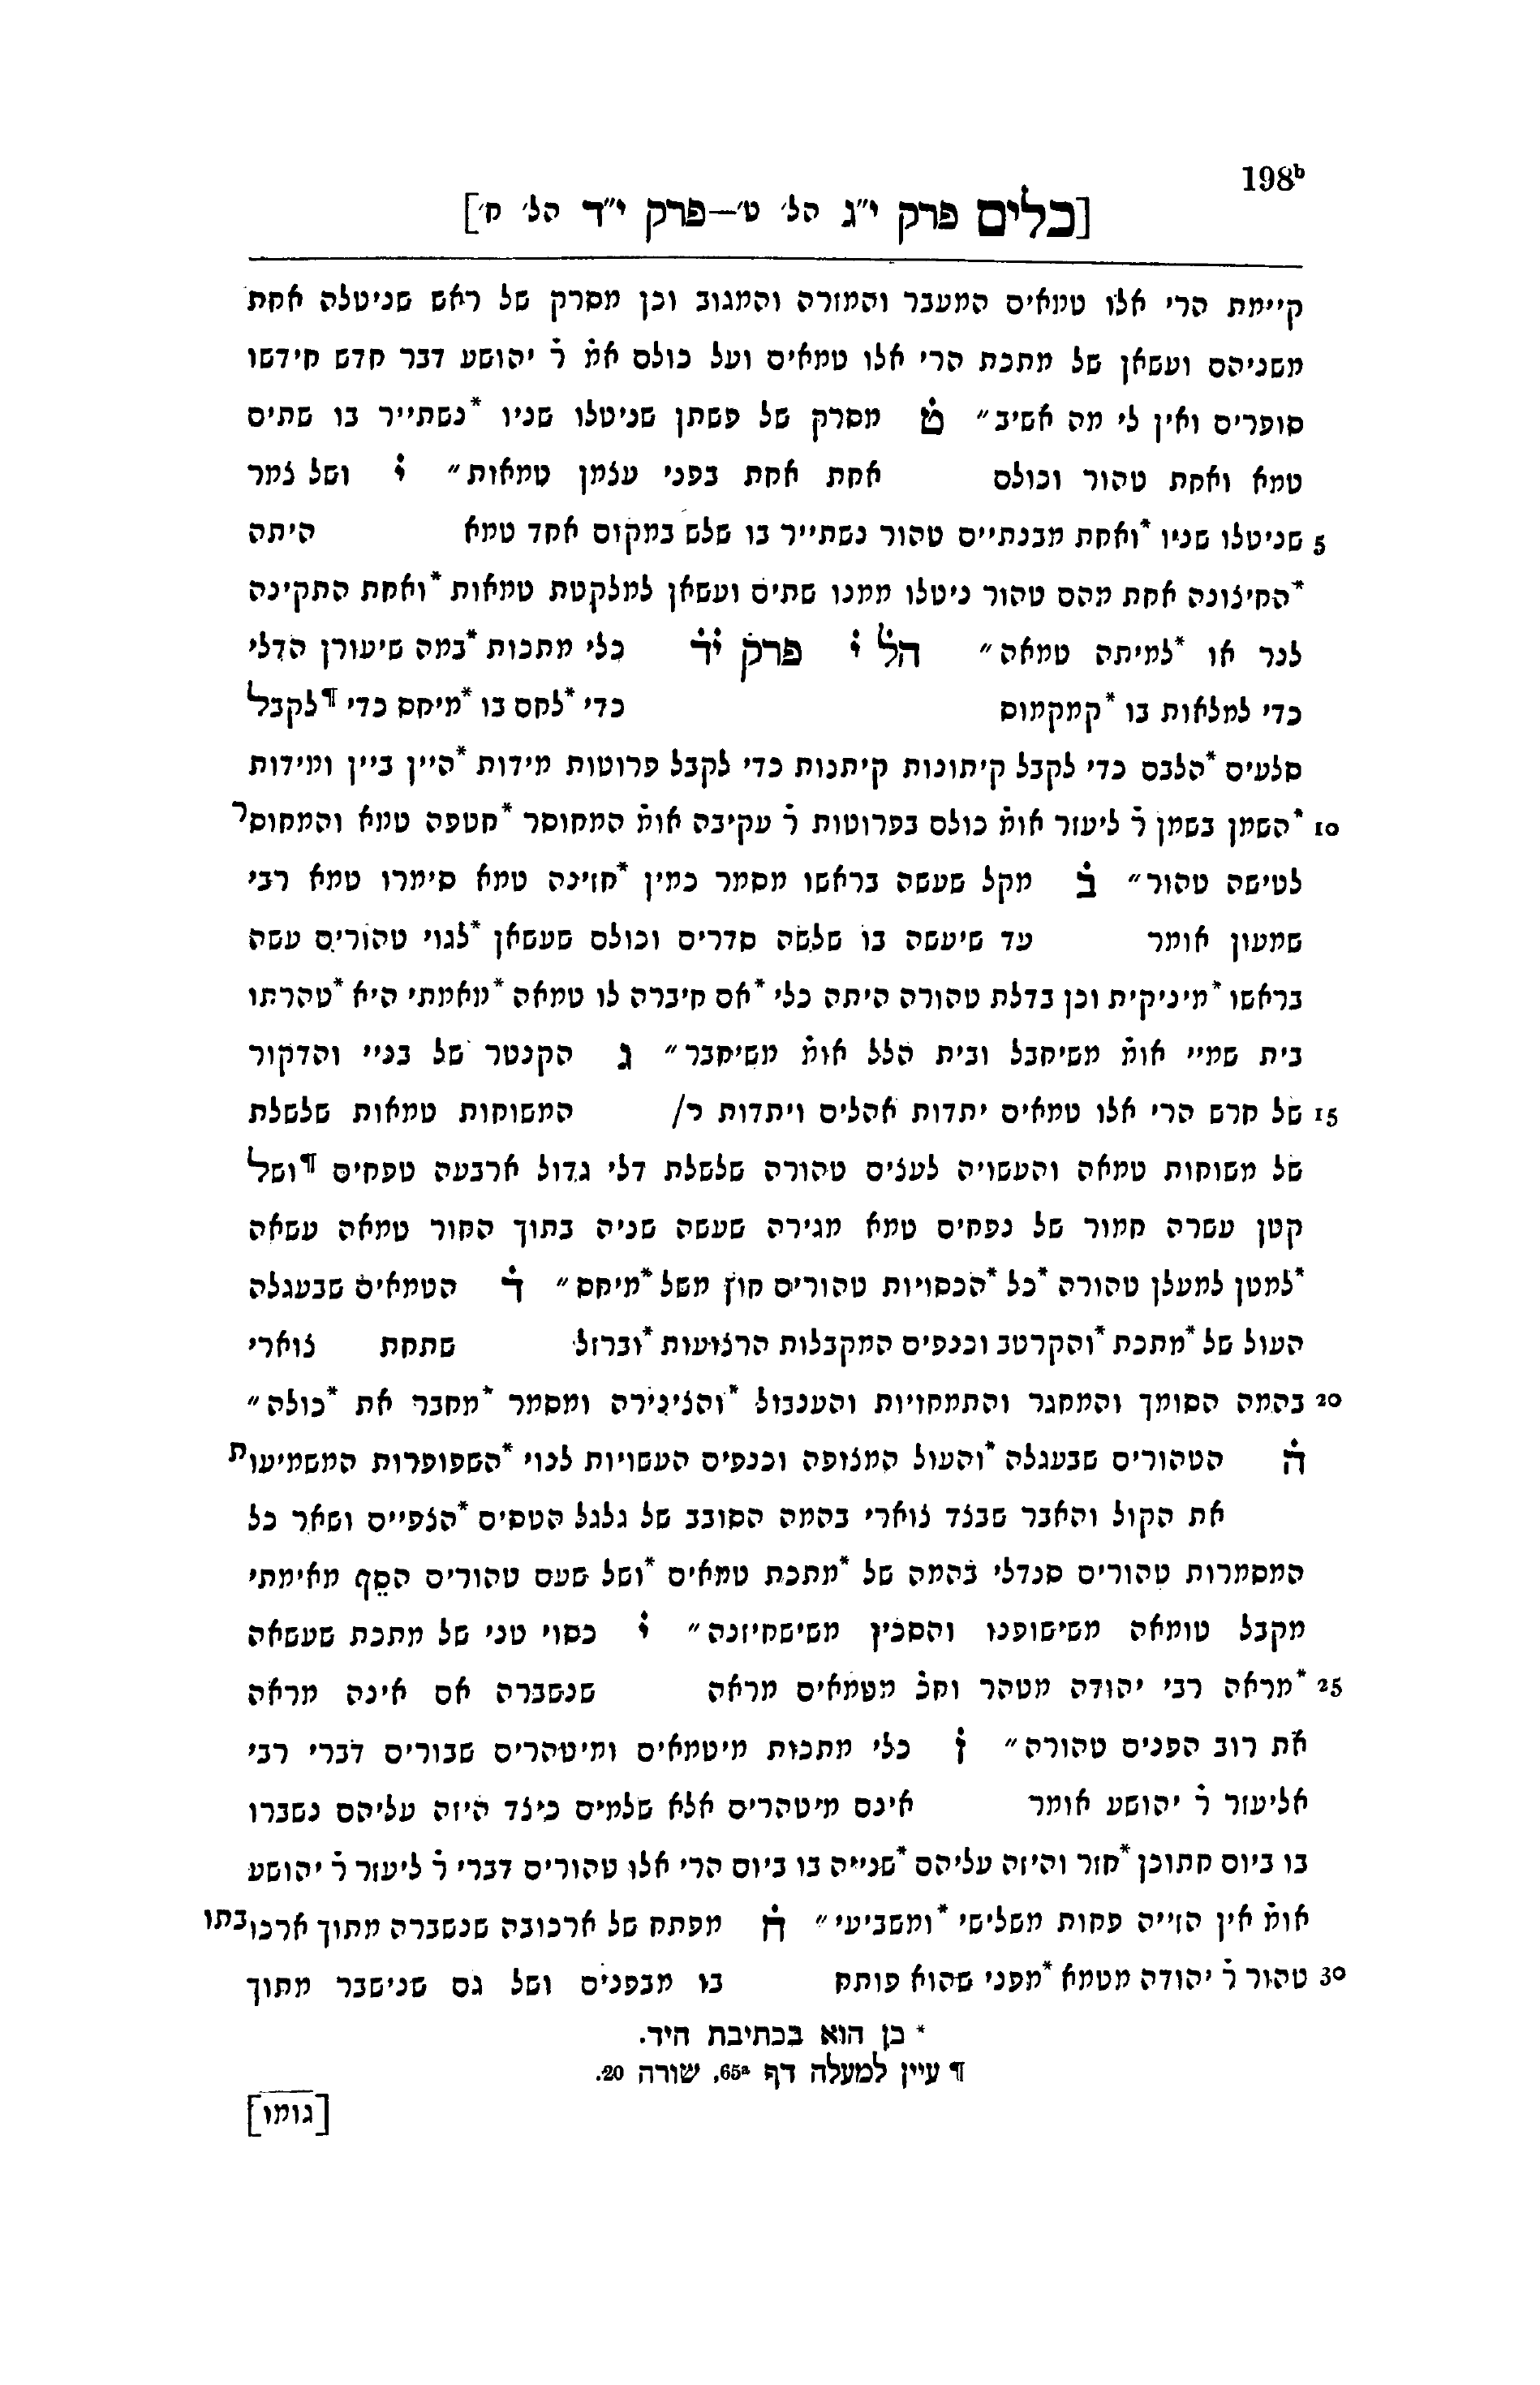 198ᵇ
[כלים פרק י״ג הל׳ ט׳—פרק י״ד הל׳ ח׳]
קיימת הרי אלו טמאים המעבר והמזרה והמגוב וכן מסרק של ראש שניטלה אחת
משניהם ועשאן של מתכת הרי אלו טמאים ועל כולם אמ̇ ר̇ יהושע דבר חדש חידשו
סופרים ואין לי מה אשיב״ ט̇ מסרק של פשתן שניטלו שניו *נשתייר בו שתים
טמא ואחת טהור וכולם אחת אחת בפני עצמן טמאות״ י̇ ושל צמר
5 שניטלו שניו *ואחת מבנתיים טהור נשתייר בו שלש במקום אחד טמא היתה
*החיצונה אחת מהם טהור ניטלו ממנו שתים ועשאן למלקטת טמאות *ואחת התקינה
לנר או *למיתה טמאה״ הל̇ י̇ פרק י̇ד̇ כלי מתכות *במה שיעורן הדלי
כדי למלאות בו *קמקמוס כדי *לחם בו *מיחם כדי ¶לקבל
סלעים *הלבס כדי לקבל קיתונות קיתנות כדי לקבל פרוטות מידות *היין ביין ומידות
10 *השמן בשמן ר̇ ליעזר אומ̇ כולם בפרוטות ר̇ עקיבה אומ̇ המחוסר *חטפה טמא והמחוסר
לטישה טהור״ ב̇ מקל שעשה בראשו מסמר כמין *חזינה טמא סימרו טמא רבי
שמעון אומר עד שיעשה בו שלשה סדרים וכולם שעשאן *לנוי טהורים עשה
בראשו *מיניקית וכן בדלת טהורה היתה כלי *אם חיברה לו טמאה *מאמתי היא *טהרתו
בית שמיי אומ̇ משיחבל ובית הלל אומ̇ משיחבר״ ג הקנטר של בניי והדקור
15 של חרש הרי אלו טמאים יתדות אהלים ויתדות ר/ המשוחות טמאות שלשלת
של משוחות טמאה והעשויה לעצים טהורה שלשלת דלי גדול ארבעה טפחים ¶ושל
קטן עשרה חמור של נפחים טמא מגירה שעשה שניה בתוך החור טמאה עשאה
*למטן למעלן טהורה *כל *הכסויות טהורים חוץ משל *מיחם״ ד̇ הטמאים שבעגלה
העול של *מתכת *והקרטב וכנפים המקבלות הרצועות *וברזל שתחת צוארי
20 בהמה הסומך והמחגר והתמחויות והענבול *והצינירה ומסמר *מחבר את *כולה״
ה̇ הטהורים שבעגלה *והעול המצופה וכנפים העשויות לנוי *השפופרות המשמיעות
את הקול והאבר שבצד צוארי בהמה הסובב של גלגל הטסים *הצפייים ושאר כל
המסמרות טהורים סנדלי בהמה של *מתכת טמאים *ושל שעם טהורים הסף מאימתי
מקבל טומאה משישופנו והסכין משישחיזנה״ י̇ כסוי טני של מתכת שעשאה
25 *מראה רבי יהודה מטהר וחכ̇ מטמאים מראה שנשברה אם אינה מראה
את רוב הפנים טהורה״ ז̇ כלי מתכות מיטמאים ומיטהרים שבורים דברי רבי
אליעזר ר̇ יהושע אומר אינם מיטהרים אלא שלמים כיצד היזה עליהם נשברו
בו ביום חתוכן *חזר והיזה עליהם *שנייה בו ביום הרי אלו טהורים דברי ר̇ ליעזר ר̇ יהושע
אומ̇ אין הזייה פחות משלישי *ומשביעי״ ח̇ מפתח של ארכובה שנשברה מתוך ארכובתו
30 טהור ר̇ יהודה מטמא *מפני שהוא פותח בו מבפנים ושל גם שנישבר מתוך
* כן הוא בכתיבת היד.
¶ עיין למעלה דף 65ᵃ, שורה 20.
[גומו]